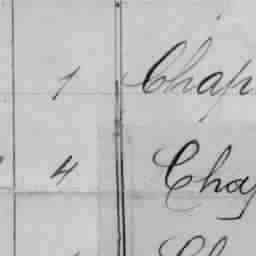 1 Chap
4 Cha